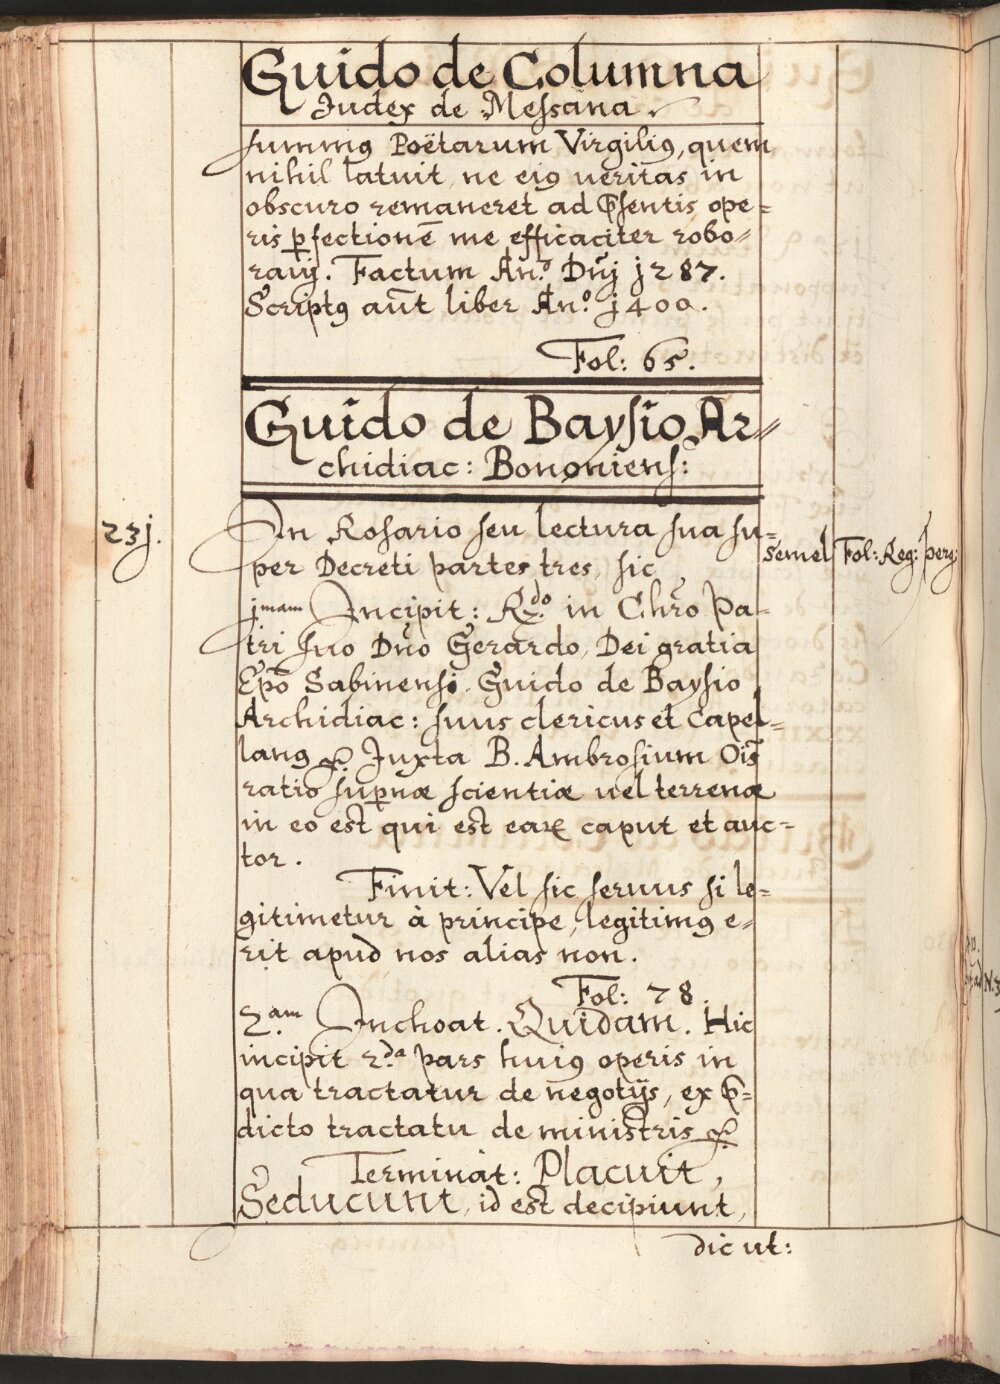 Guido de Columna
Judex de Meſsana.
ſummꝯ Poëtarum Virgiliꝯ, quem
nihil latuit, ne eiꝯ ueritas in
obscuro remaneret ad p̃ſentis ope=
ris ꝑfectionẽ me efficaciter robo=
rauj. Factum An.º Dñj j287.
Scriptꝯ aũt liber An.º j400.
Fol: 65.
Guido de Bayſio Ar=
chidiac: Bononienſ:
23j.
In Roſario ſeu lectura ſua ſu=
per Decreti partes tres, ſic
semel
Fol: Reg: perg:
jmam Incipit: R.do in Chr̃o Pa=
tri ſuo Dño Gerardo, Dei gratia
Ep̃o Sabinenſi. Guido de Bayſio
Archidiac: ſuus clericus et Capel=
lanꝯ &. Juxta B. Ambroſium Oĩs
ratio ſuꝑnæ ſcientiæ uel terrenæ
in eo est qui est eaꝝ caput et auc=
tor.
Finit: Vel ſic ſeruus ſi le=
gitimetur à principe, legitimꝯ e=
rit apud nos alias non.
Fol: 78.
2.am Inchoat. Quidam. Hic
incipit 2.da pars huiꝯ operis in
qua tractatur de negotijs, ex p̃=
dicto tractatu de ministris &.
Terminat: Placuit,
Seducunt, id est decipiunt,
dic ut: